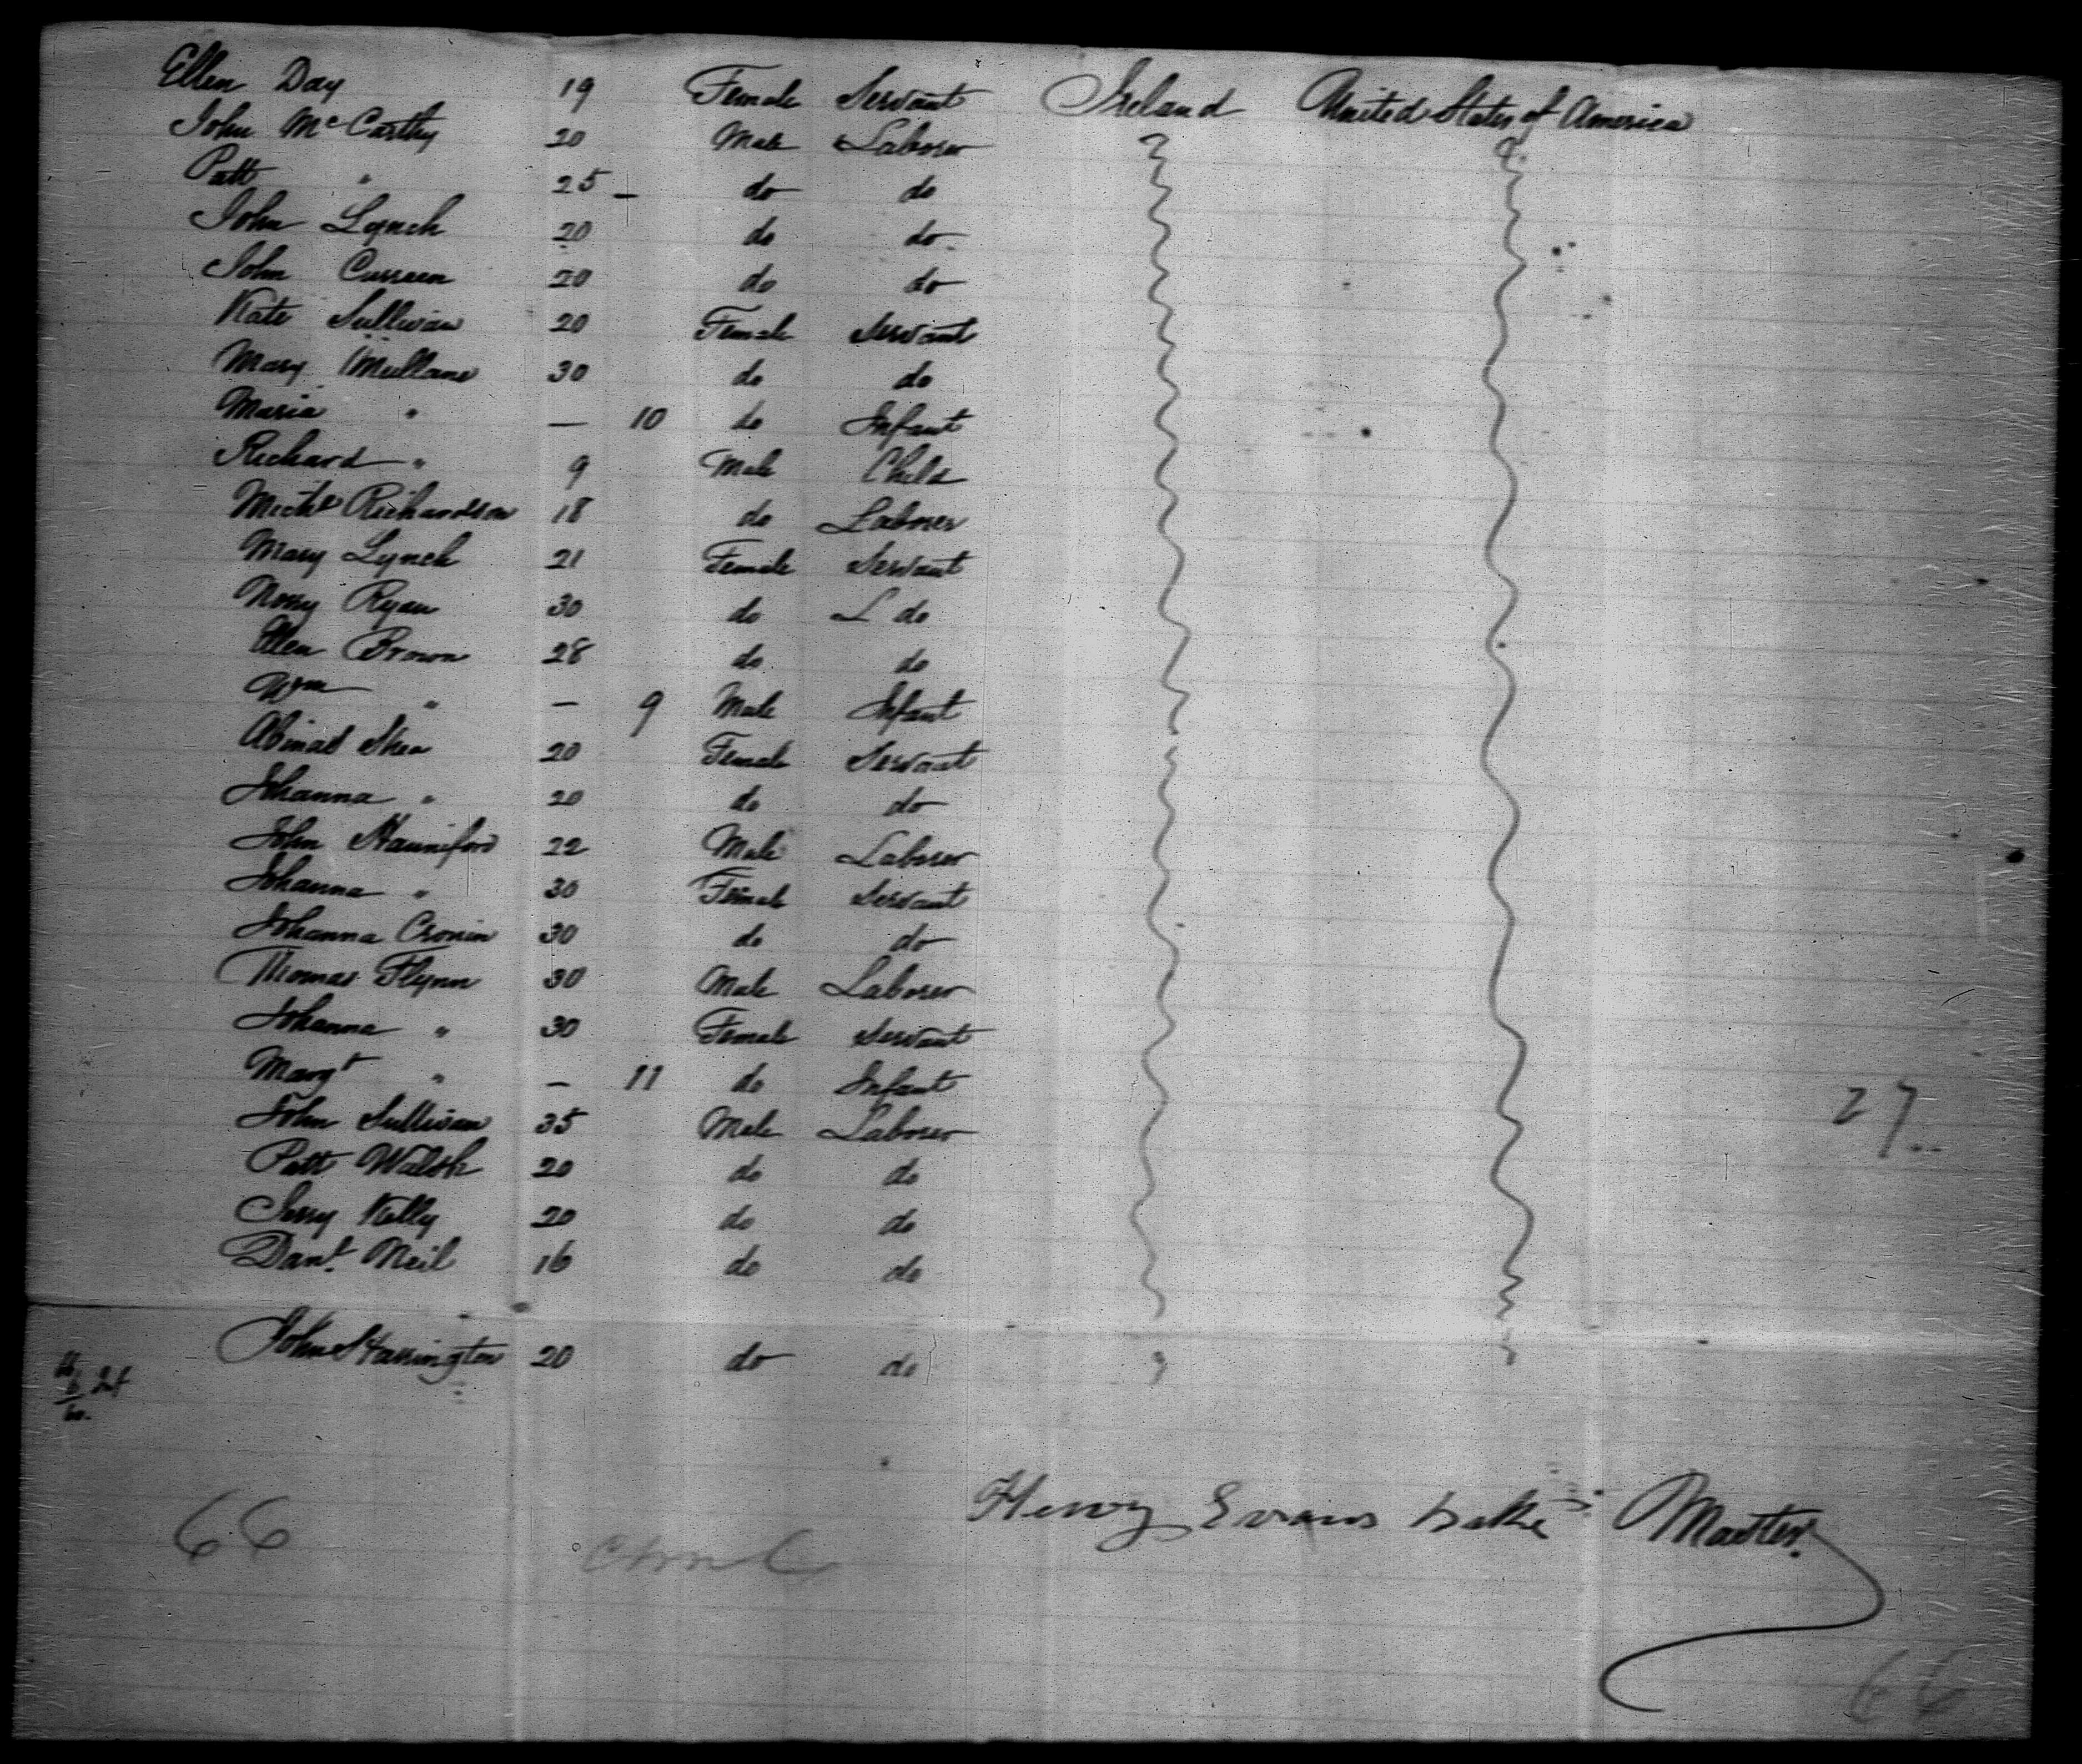 Ellen Day 19 Female Servant Ireland United States of America
John McCarthy 20 Male Laborer
Patt " 25 - do do
John Lynch 20 do do
John Curreen 20 do do
Kate Sullivan 20 Female Servant
Mary Mullane 30 do do
Maria " — 10 do Infant
Richard " 9 Male Child
Michl Richardson 18 do Laborer
Mary Lynch 21 Female Servant
Norry Ryan 30 do do
Ellen Brown 28 do do
Wm " — 9 Male Infant
Abinal Shea 20 Female Servant
Johanna " 20 do do
John Hanniford 22 Male Laborer
Johanna " 30 Female Servant
Johanna Cronin 30 do do
Thomas Flynn 30 Male Laborer
Johanna " 30 Female Servant
Margt " — 11 do Infant
John Sullivan 35 Male Laborer
27
Patt Walsh 20 do do
Jerry Kelly 20 do do
Danl. Neil 16 do do
John Harrington 20 do do
Henry Evans Master.
66
66